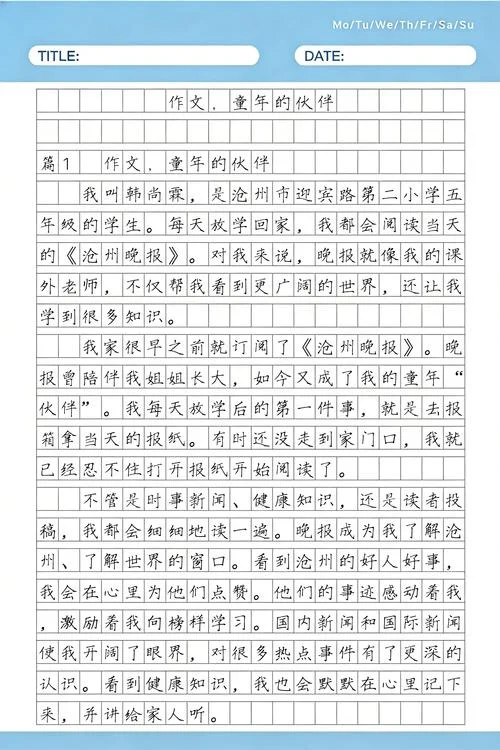 Mo/Tu/We/Th/Fr/Sa/Su
TITLE:
DATE:
作文，童年的伙伴
篇1 作文，童年的伙伴
我叫韩尚霖，是沧州市迎宾路第二小学五
年级的学生。每天放学回家，我都会阅读当天
的《沧州晚报》。对我来说，晚报就像我的课
外老师，不仅帮我看到更广阔的世界，还让我
学到很多知识。
我家很早之前就订阅了《沧州晚报》。晚
报曾陪伴我姐姐长大，如今又成了我的童年“
伙伴”。我每天放学后的第一件事，就是去报
箱拿当天的报纸。有时还没走到家门口，我就
已经忍不住打开报纸开始阅读了。
不管是时事新闻、健康知识，还是读者投
稿，我都会细细地读一遍。晚报成为我了解沧
州、了解世界的窗口。看到沧州的好人好事，
我会在心里为他们点赞。他们的事迹感动着我
，激励着我向榜样学习。国内新闻和国际新闻
使我开阔了眼界，对很多热点事件有了更深的
认识。看到健康知识，我也会默默在心里记下
来，并讲给家人听。